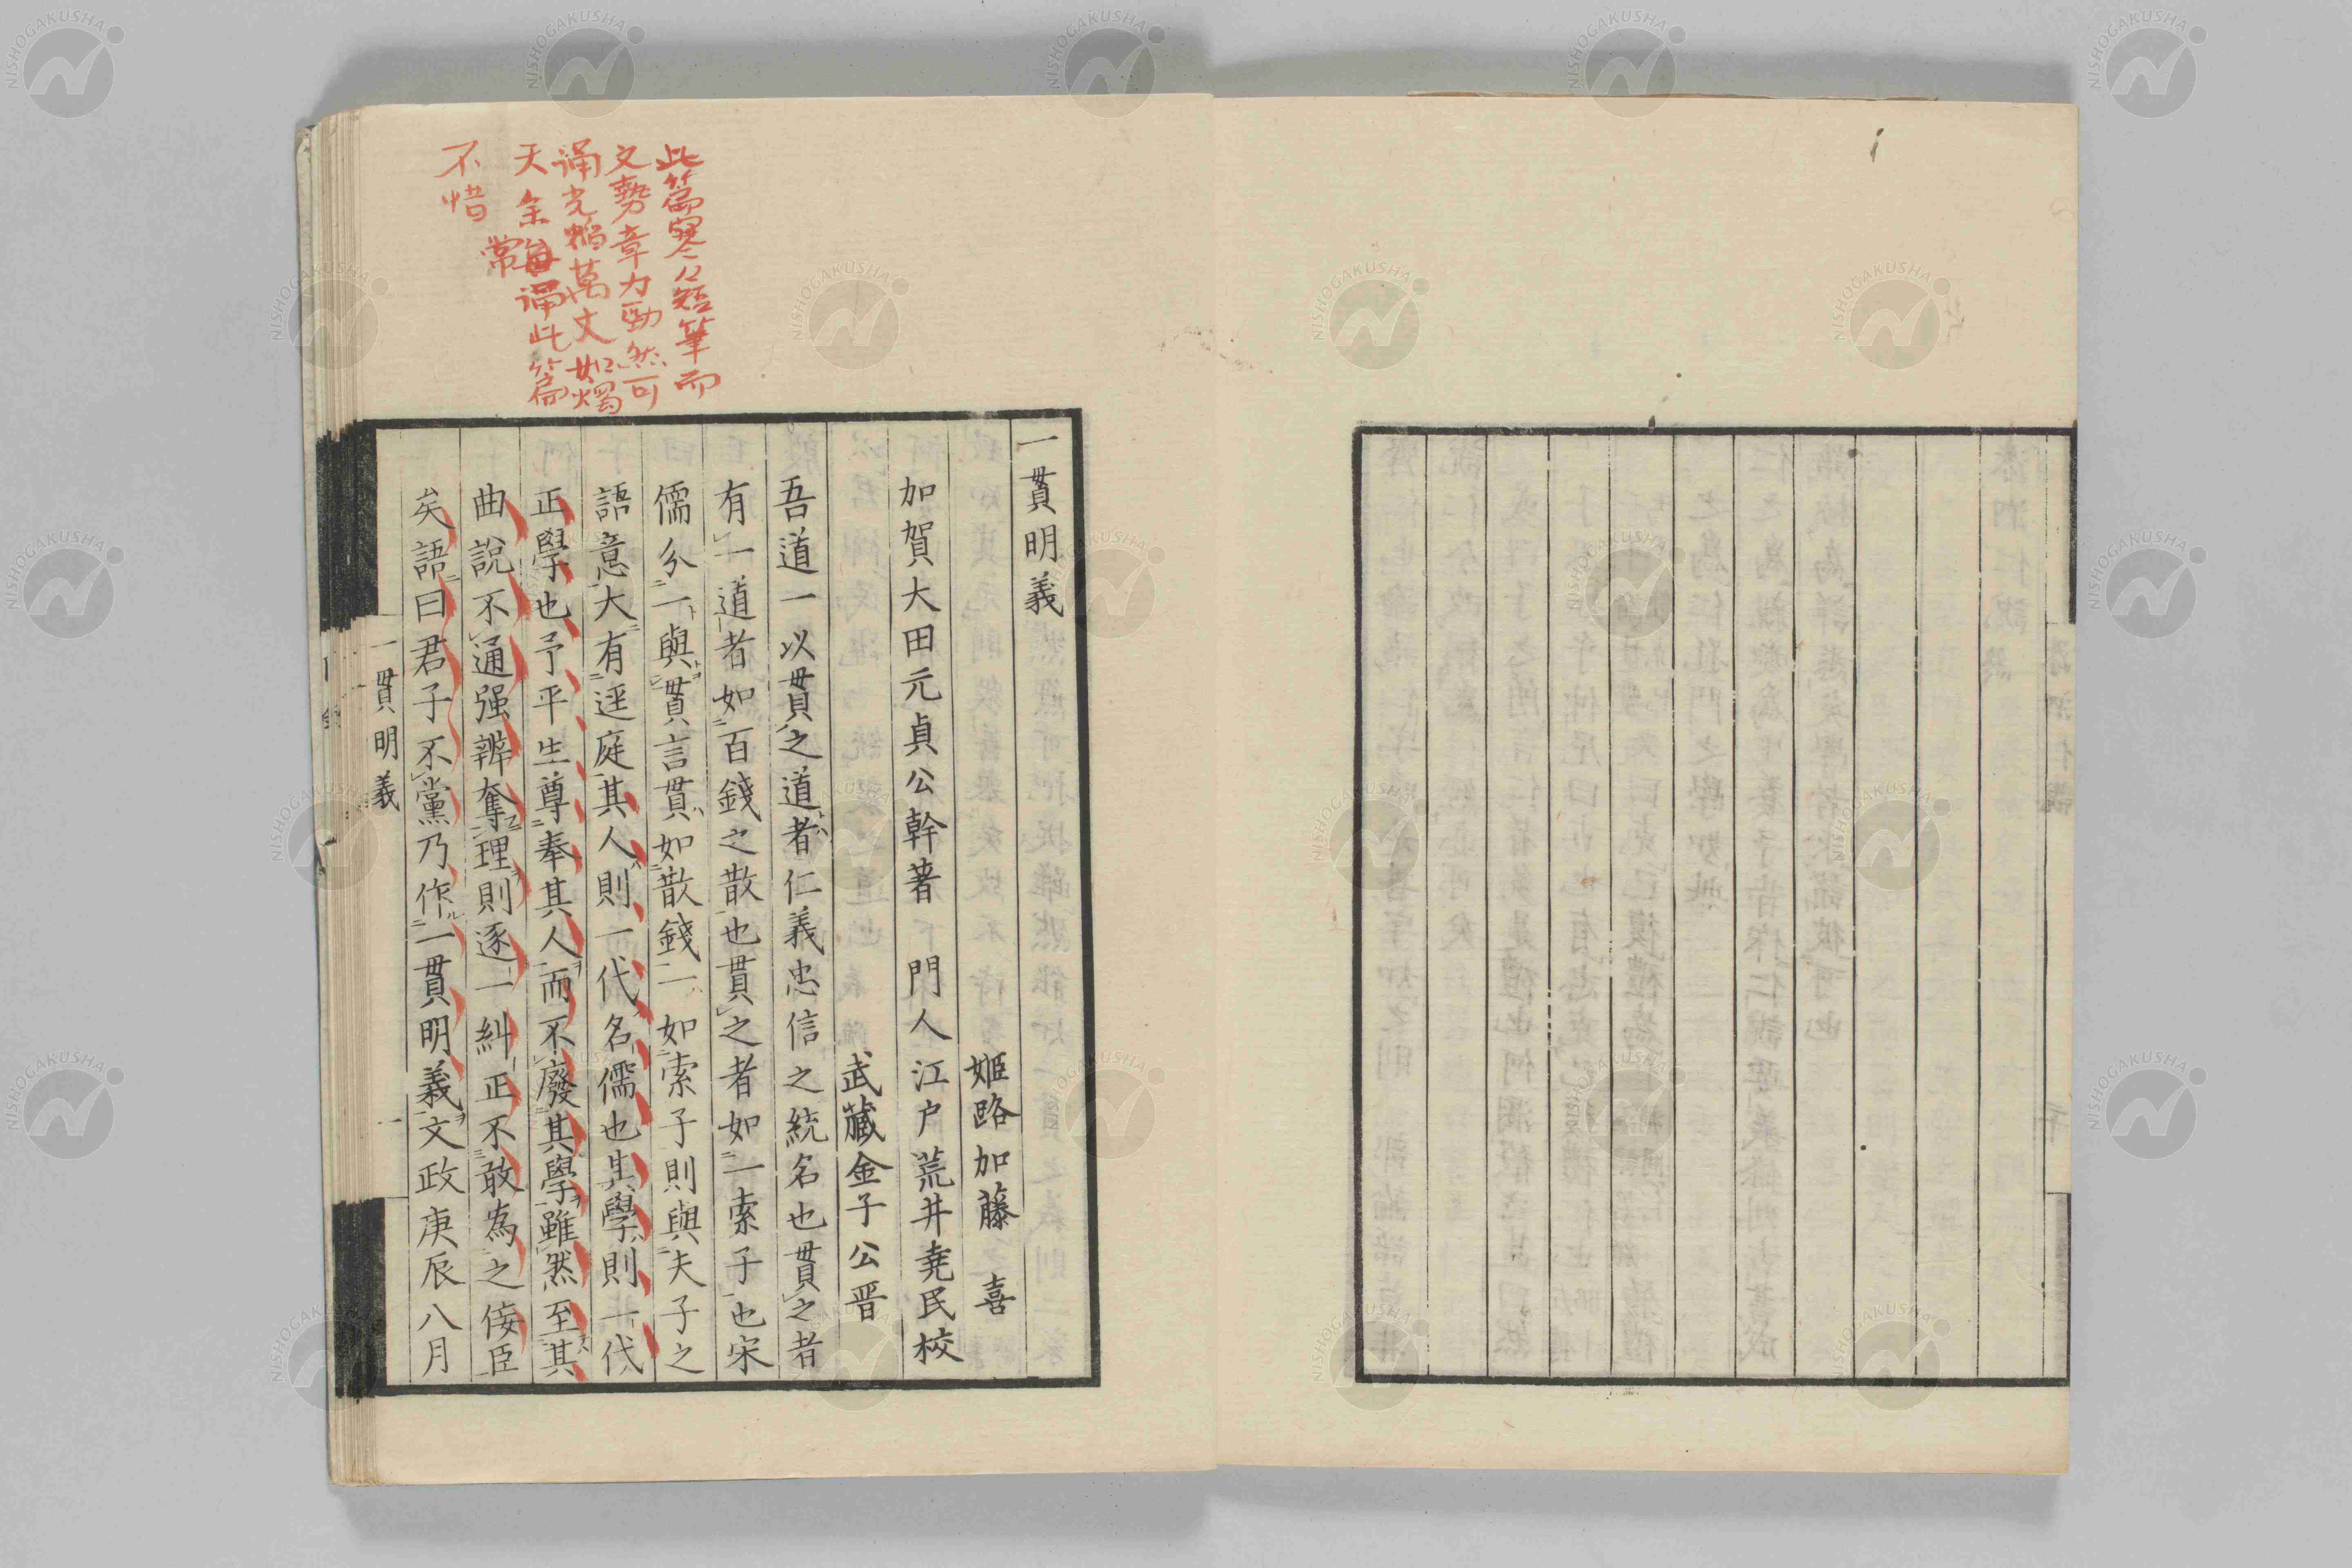 此篇寥〻短筆而
文勢章力勁然可
誦光焰萬丈如燭
天余每誦此篇
常
不惜
一貫明義
姬路加藤 喜
加賀大田元貞公幹著 門人江戶荒井堯民校
武藏金子公晋
吾道一以貫之道者仁義忠信之統名也貫之者
有一道者如百錢之散也貫之者如一索子也宋
儒分一與貫言貫如散錢一如索子則與夫子之
語意大有逕庭其人則一代名儒也其學則一代
正學也予平生尊奉其人而不廢其學雖然至其
曲說不通强辨奪理則逐一糾正不敢為之倿臣
矣語曰君子不黨乃作一貫明義文政庚辰八月
一貫明義 一
NISHOGAKUSHA